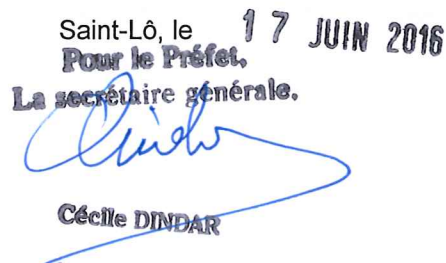 Saint-Lô, le 17 JUIN 2016
Pour le Préfet,
La secrétaire générale,
Cécile DINDAR